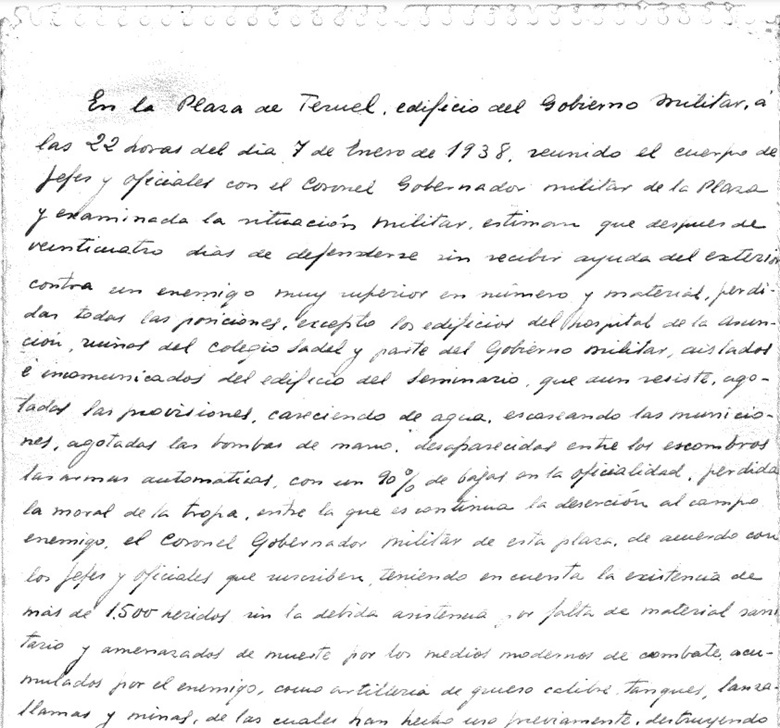 En la Plaza de Teruel, edificio del Gobierno Militar, á
las 22 horas del dia 7 de Enero de 1938, reunido el cuerpo de
Jefes y oficiales con el Coronel Gobernador militar de la Plaza
y examinada la situación militar, estiman que despues de
veinticuatro dias de defenderse sin recibir ayuda del exterior
contra un enemigo muy superior en número y material, perdi-
das todas las posiciones, excepto los edificios del hospital de la Asun-
ción, ruinas del Colegio Sadel y parte del Gobierno militar, aislados
é incomunicados del edificio del Seminario, que aun resiste, ago-
tadas las provisiones, careciendo de agua, escaseando las municio-
nes, agotadas las bombas de mano, desaparecidas entre los escombros
las armas automáticas, con un 90% de bajas en la oficialidad, perdida
la moral de la tropa, entre la que es continua la deserción al campo
enemigo, el Coronel Gobernador militar de esta plaza, de acuerdo con
los Jefes y oficiales que suscriben, teniendo en cuenta la existencia de
más de 1.500 heridos sin la debida asistencia por falta de material sani
tario y amenazados de muerte por los medios modernos de combate, acu-
mulados por el enemigo, como artilleria de grueso calibre, tanques, lanza-
llamas y minas, de las cuales han hecho uso previamente, destruyendo